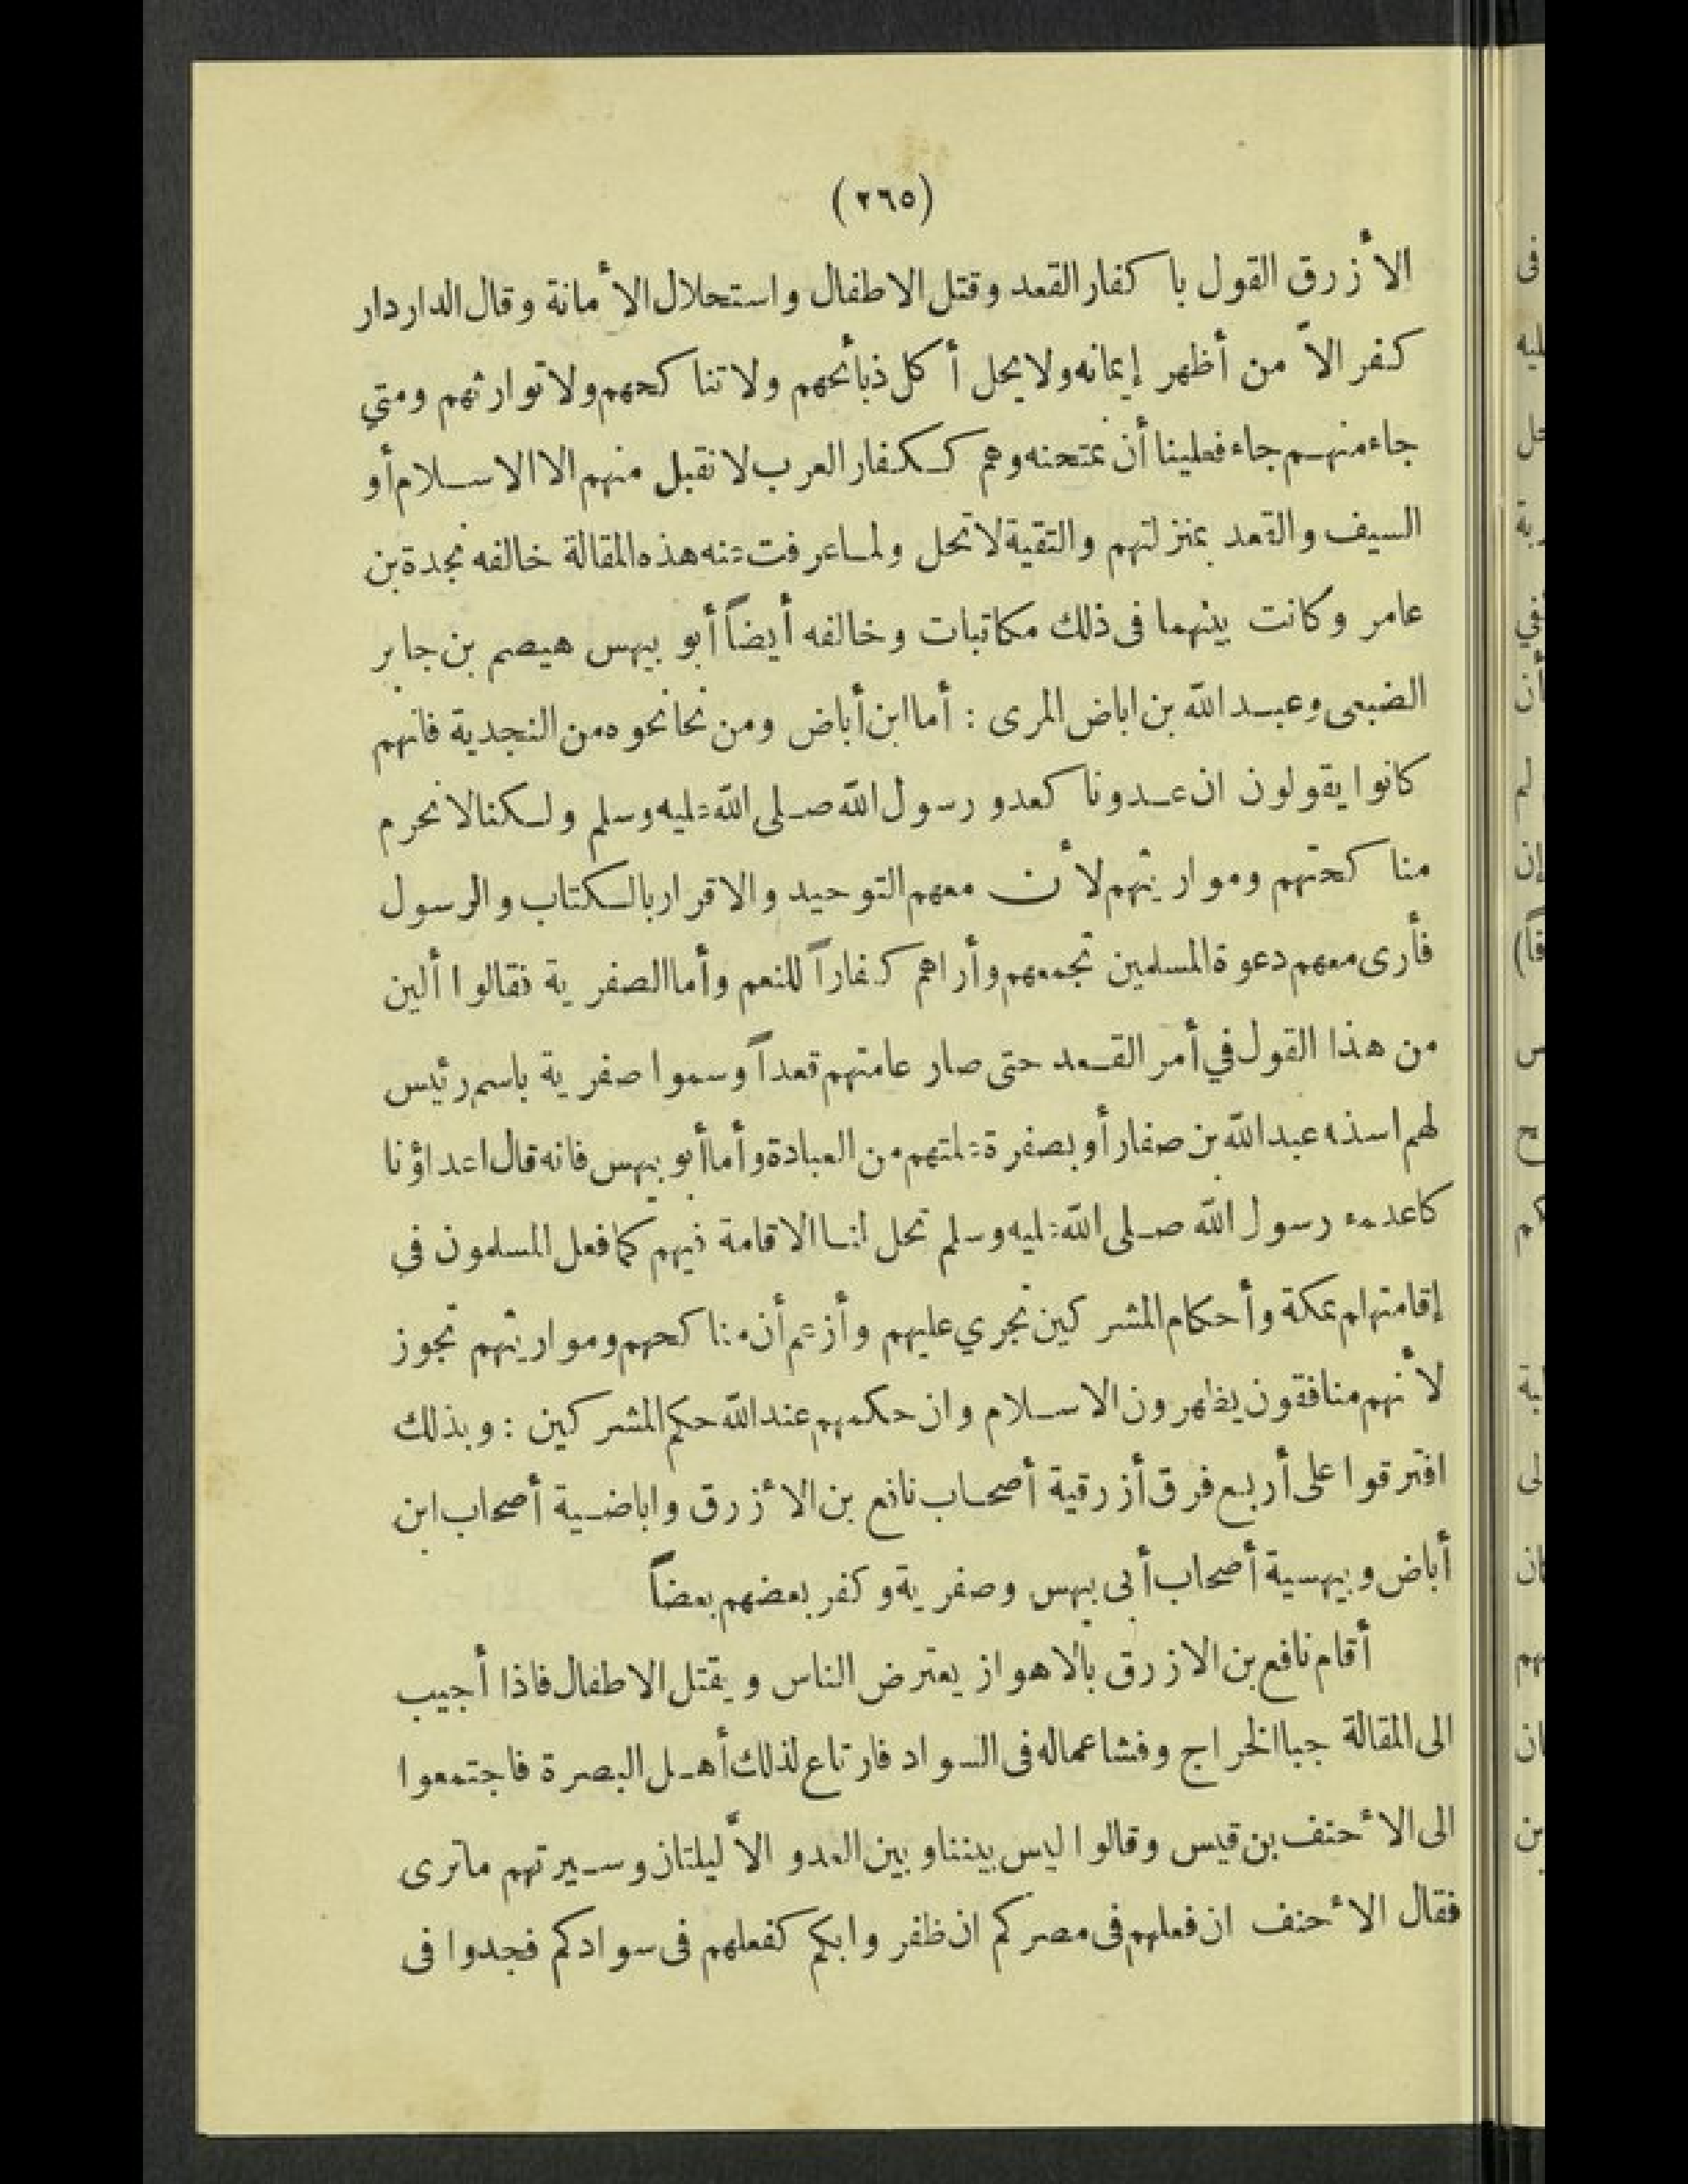 (٢٦٥)
الأزرق القول باكفار القعد وقتل الاطفال واستحلال الأمانة وقال الدار دار
كفر الاّ من أظهر إيمانه ولا يحل أكل ذبائحهم ولا تناكحهم ولا توارثهم ومتى
جاء منهم جاء فعلينا أن نمتحنه وهم ككفار العرب لا نقبل منهم الا الاسلام أو
السيف والقعد بمنزلتهم والتقية لا تحل ولما عرفت عنه هذه المقالة خالفه نجدة بن
عامر وكانت بينهما فى ذلك مكاتبات وخالفه أيضاً أبو بيهس هيصم بن جابر
الضبعى وعبد الله بن اباض المرى : أما ابن أباض ومن نحا نحوه من النجدية فانهم
كانوا يقولون ان عدونا كعدو رسول الله صلى الله عليه وسلم ولكنا لا نحرم
مناكحتهم ومواريثهم لأن معهم التوحيد والاقرار بالكتاب والرسول
فأرى معهم دعوة المسلمين تجمعهم وأراهم كفاراً للنعم وأما الصفرية فقالوا ألين
من هذا القول في أمر القعد حتى صار عامتهم قعداً وسموا صفرية باسم رئيس
لهم اسذه عبد الله بن صفار أو بصفرة علتهم من العبادة وأما أبو بيهس فانه قال اعداؤنا
كاعدء رسول الله صلى الله عليه وسلم تحل لنا الاقامة فيهم كما فعل المسلمون في
إقامتهم بمكة وأحكام المشركين تجري عليهم وأزعم أن مناكحهم ومواريثهم تجوز
لأنهم منافقون يظهرون الاسلام وان حكمهم عند الله حكم المشركين : وبذلك
افترقوا على أربع فرق أزرقية أصحاب نافع بن الأزرق واباضية أصحاب ابن
أباض وبيهسية أصحاب أبى بيهس وصفرية وكفر بعضهم بعضاً
أقام نافع بن الازرق بالاهواز يعترض الناس ويقتل الاطفال فاذا أجيب
الى المقالة جبا الخراج وفشا عماله فى السواد فارتاع لذلك أهل البصرة فاجتمعوا
الى الأحنف بن قيس وقالوا ليس بيننا وبين العدو الاّ ليلتان وسيرتهم ما ترى
فقال الأحنف ان فعلهم فى مصركم ان ظفروا بكم كفعلهم فى سوادكم فجدوا فى